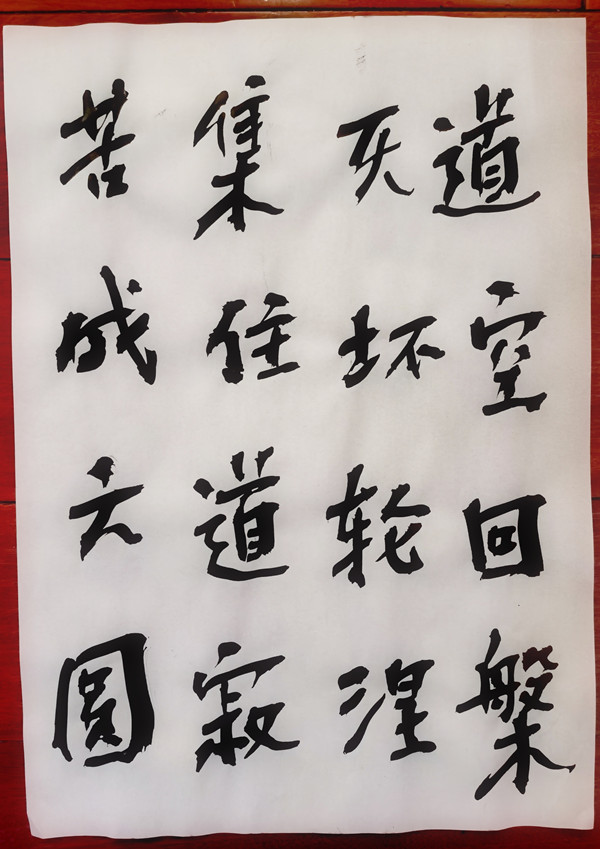 苦集灭道
成住坏空
六道轮回
圆寂涅槃